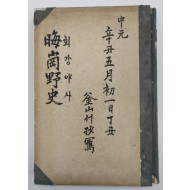 中元
辛丑五月初一日丁丑
釜山竹抄寫
晦崗野史
회강야사